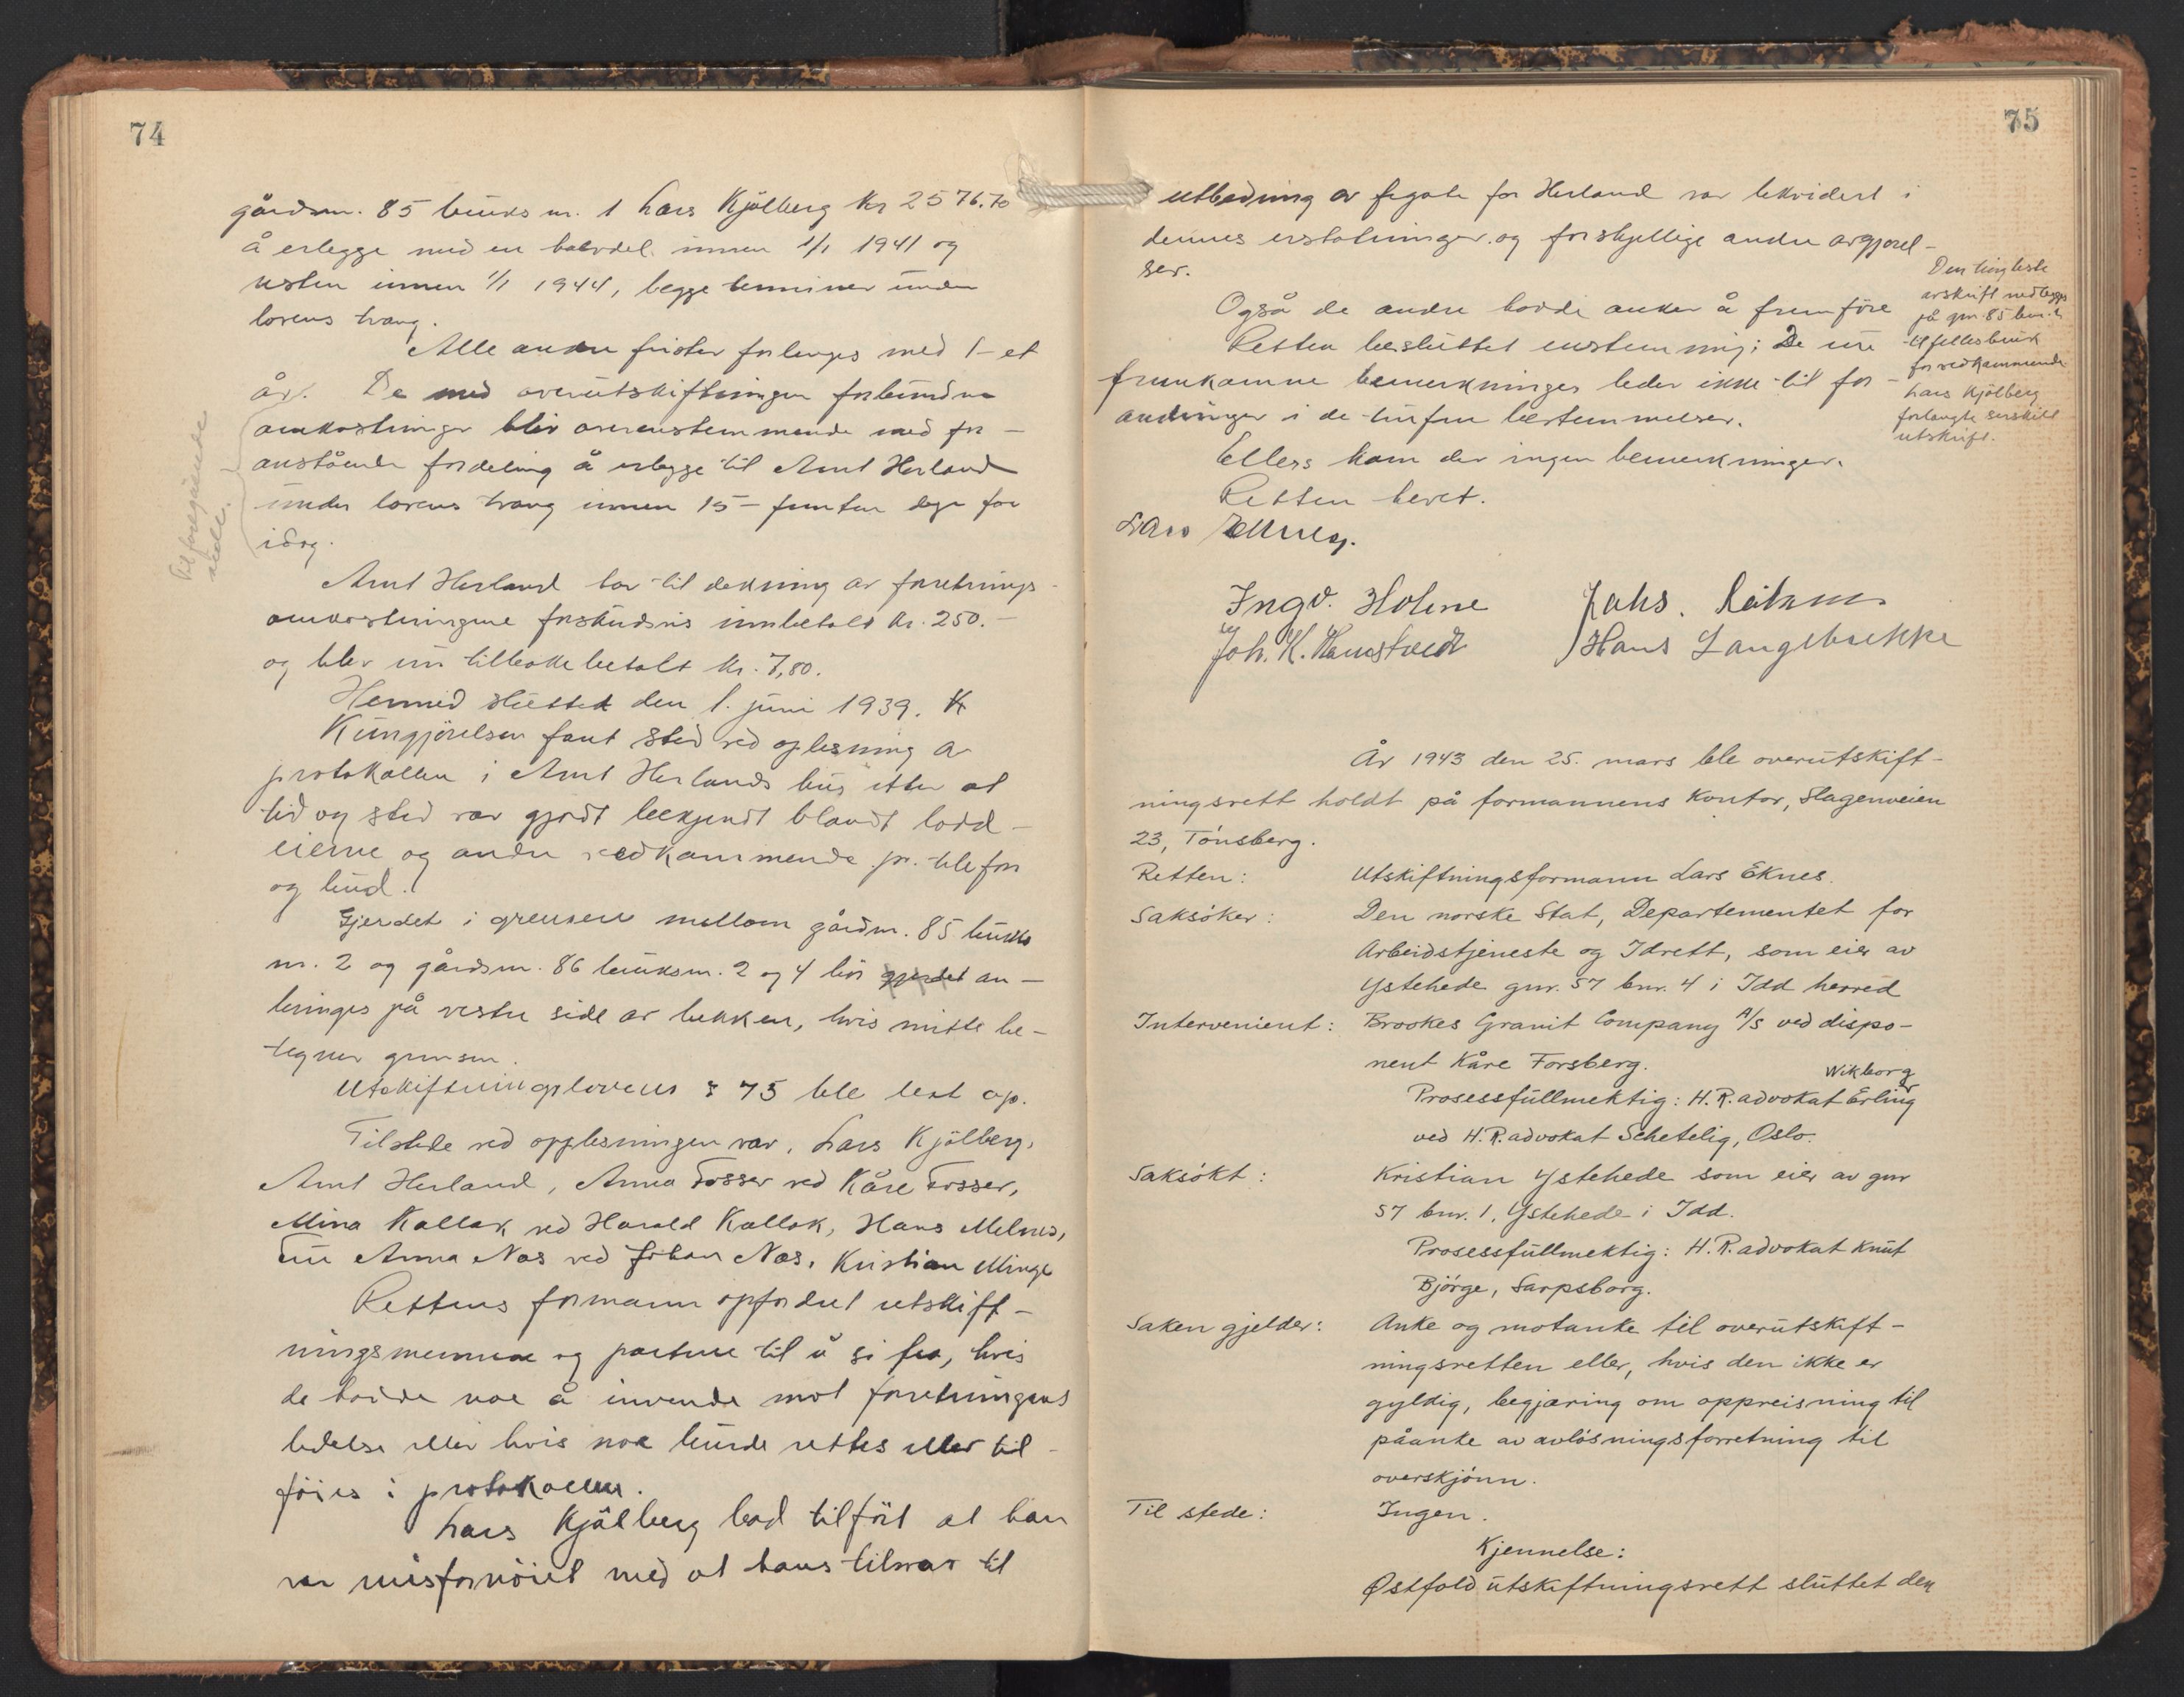 74
gårdsnr. 85 bruks nr. 1 Lars Kjölberg kr 2576.70
å erlegge med en halvdel innen 1/1 1941 og
resten innen 1/1 1944, begge terminer under
lovens tvang.
Alle andre frister forlenges med 1 - et
år. De med overutskiftningen forbundne
omkostninger blir overenstemmende med for-
anstående fordeling å erlegge til Arnt Herland
under lovens tvang innen 15 - femten dage fra
idag.
Til foregående
side.
Arnt Herland har til dekning av forretnings-
omkostningene forskudsvis innbetalt kr. 250.-
og blev nu tilbakebetalt kr. 7,80.
Hermed sluttet den 1. juni 1939.
Kungjörelsen fant sted ved oplesning av
protokollen i Arnt Herlands hus etter at
tid og sted var gjordt bekjendt blandt lodd-
eierne og andre vedkommende pr. telefon
og bud.
Gjerdet i grensen mellom gårdsnr. 85 bruks
nr. 2 og gårdsnr. 86 bruksnr. 2 og 4 bör gjerdet an-
bringes på vestre side av bekken, hvis mitte be-
tegner grensen.
Utskiftningslovens § 75 ble lest op.
Tilstede ved opplesningen var, Lars Kjölberg,
Arnt Herland, Anna Fosser ved Kåre Fosser,
Mina Kallak ved Harald Kallak, Hans Melnes,
Fru Anna Næs ved Johan Næs, Kristian Minge
Rettens formann opfordret utskift-
ningsmennene og partene til å si fra, hvis
de hadde noe å invende mot forretningens
ledelse eller hvis noe burde rettes eller til-
föies i protokollen.
Lars Kjölberg bad tilfört at han
var misfornöiet med at hans tilsvar til
75
utbedring av fegate for Herland var likvidert i
dennes erstatninger og forskjellige andre avgjörel-
ser.
Også de andre hadde anker å fremföre
Retten besluttet enstemmig: De nu
fremkomne bemerkninger leder ikke til for-
andringer i de trufne bestemmelser.
Ellers kom der ingen bemerkninger.
Retten hevet.
Den tinglyste
avskrift nedlegges
på gnr. 85 bnr. 2
til fellesbruk
for vedkommende
Lars Kjölberg
forlangte særskilt
utskrift.
Lars Eknes.
Ingv. Holme
Joh. K. Hamstvedt Hans Langebrekke
År 1943 den 25. mars ble overutskift-
ningsrett holdt på formannens kontor, Slagenveien
23, Tönsberg.
Retten: Utskiftningsformann Lars Eknes.
Saksöker: Den norske Stat, Departementet for
Arbeidstjeneste og Idrett, som eier av
Ystehede gnr. 57 bnr. 4 i Idd herred
Intervenient: Brookes Granit Company A/S ved dispo-
nent Kåre Forsberg.
Wikborg
Prosessfullmektig: H.R.advokat Erling
ved H.R.advokat Schetelig, Oslo.
Saksökt: Kristian Ystehede som eier av gnr
57 bnr. 1, Ystehede i Idd.
Prosessfullmektig: H.R.advokat Knut
Björge, Sarpsborg.
Saken gjelder: Anke og motanke til overutskift-
ningsretten eller, hvis den ikke er
gyldig, begjæring om oppreisning til
påanke av avlösningsforretning til
overskjönn.
Til stede: Ingen.
Kjennelse:
Østfold utskiftningsrett sluttet den